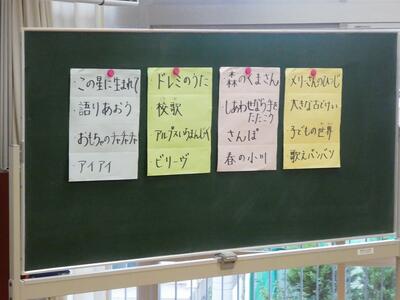 ・この星に生まれて
・語りあおう
・おもちゃのチャチャチャ
・アイアイ
・ドレミのうた
・校歌
・アルプスいちまんじゃく
・ビリーヴ
・森のくまさん
・しあわせなら手を
たたこう
・さんぽ
・春の小川
・メリーさんのひつじ
・大きな古どけい
・子どもの世界
・歌えバンバン